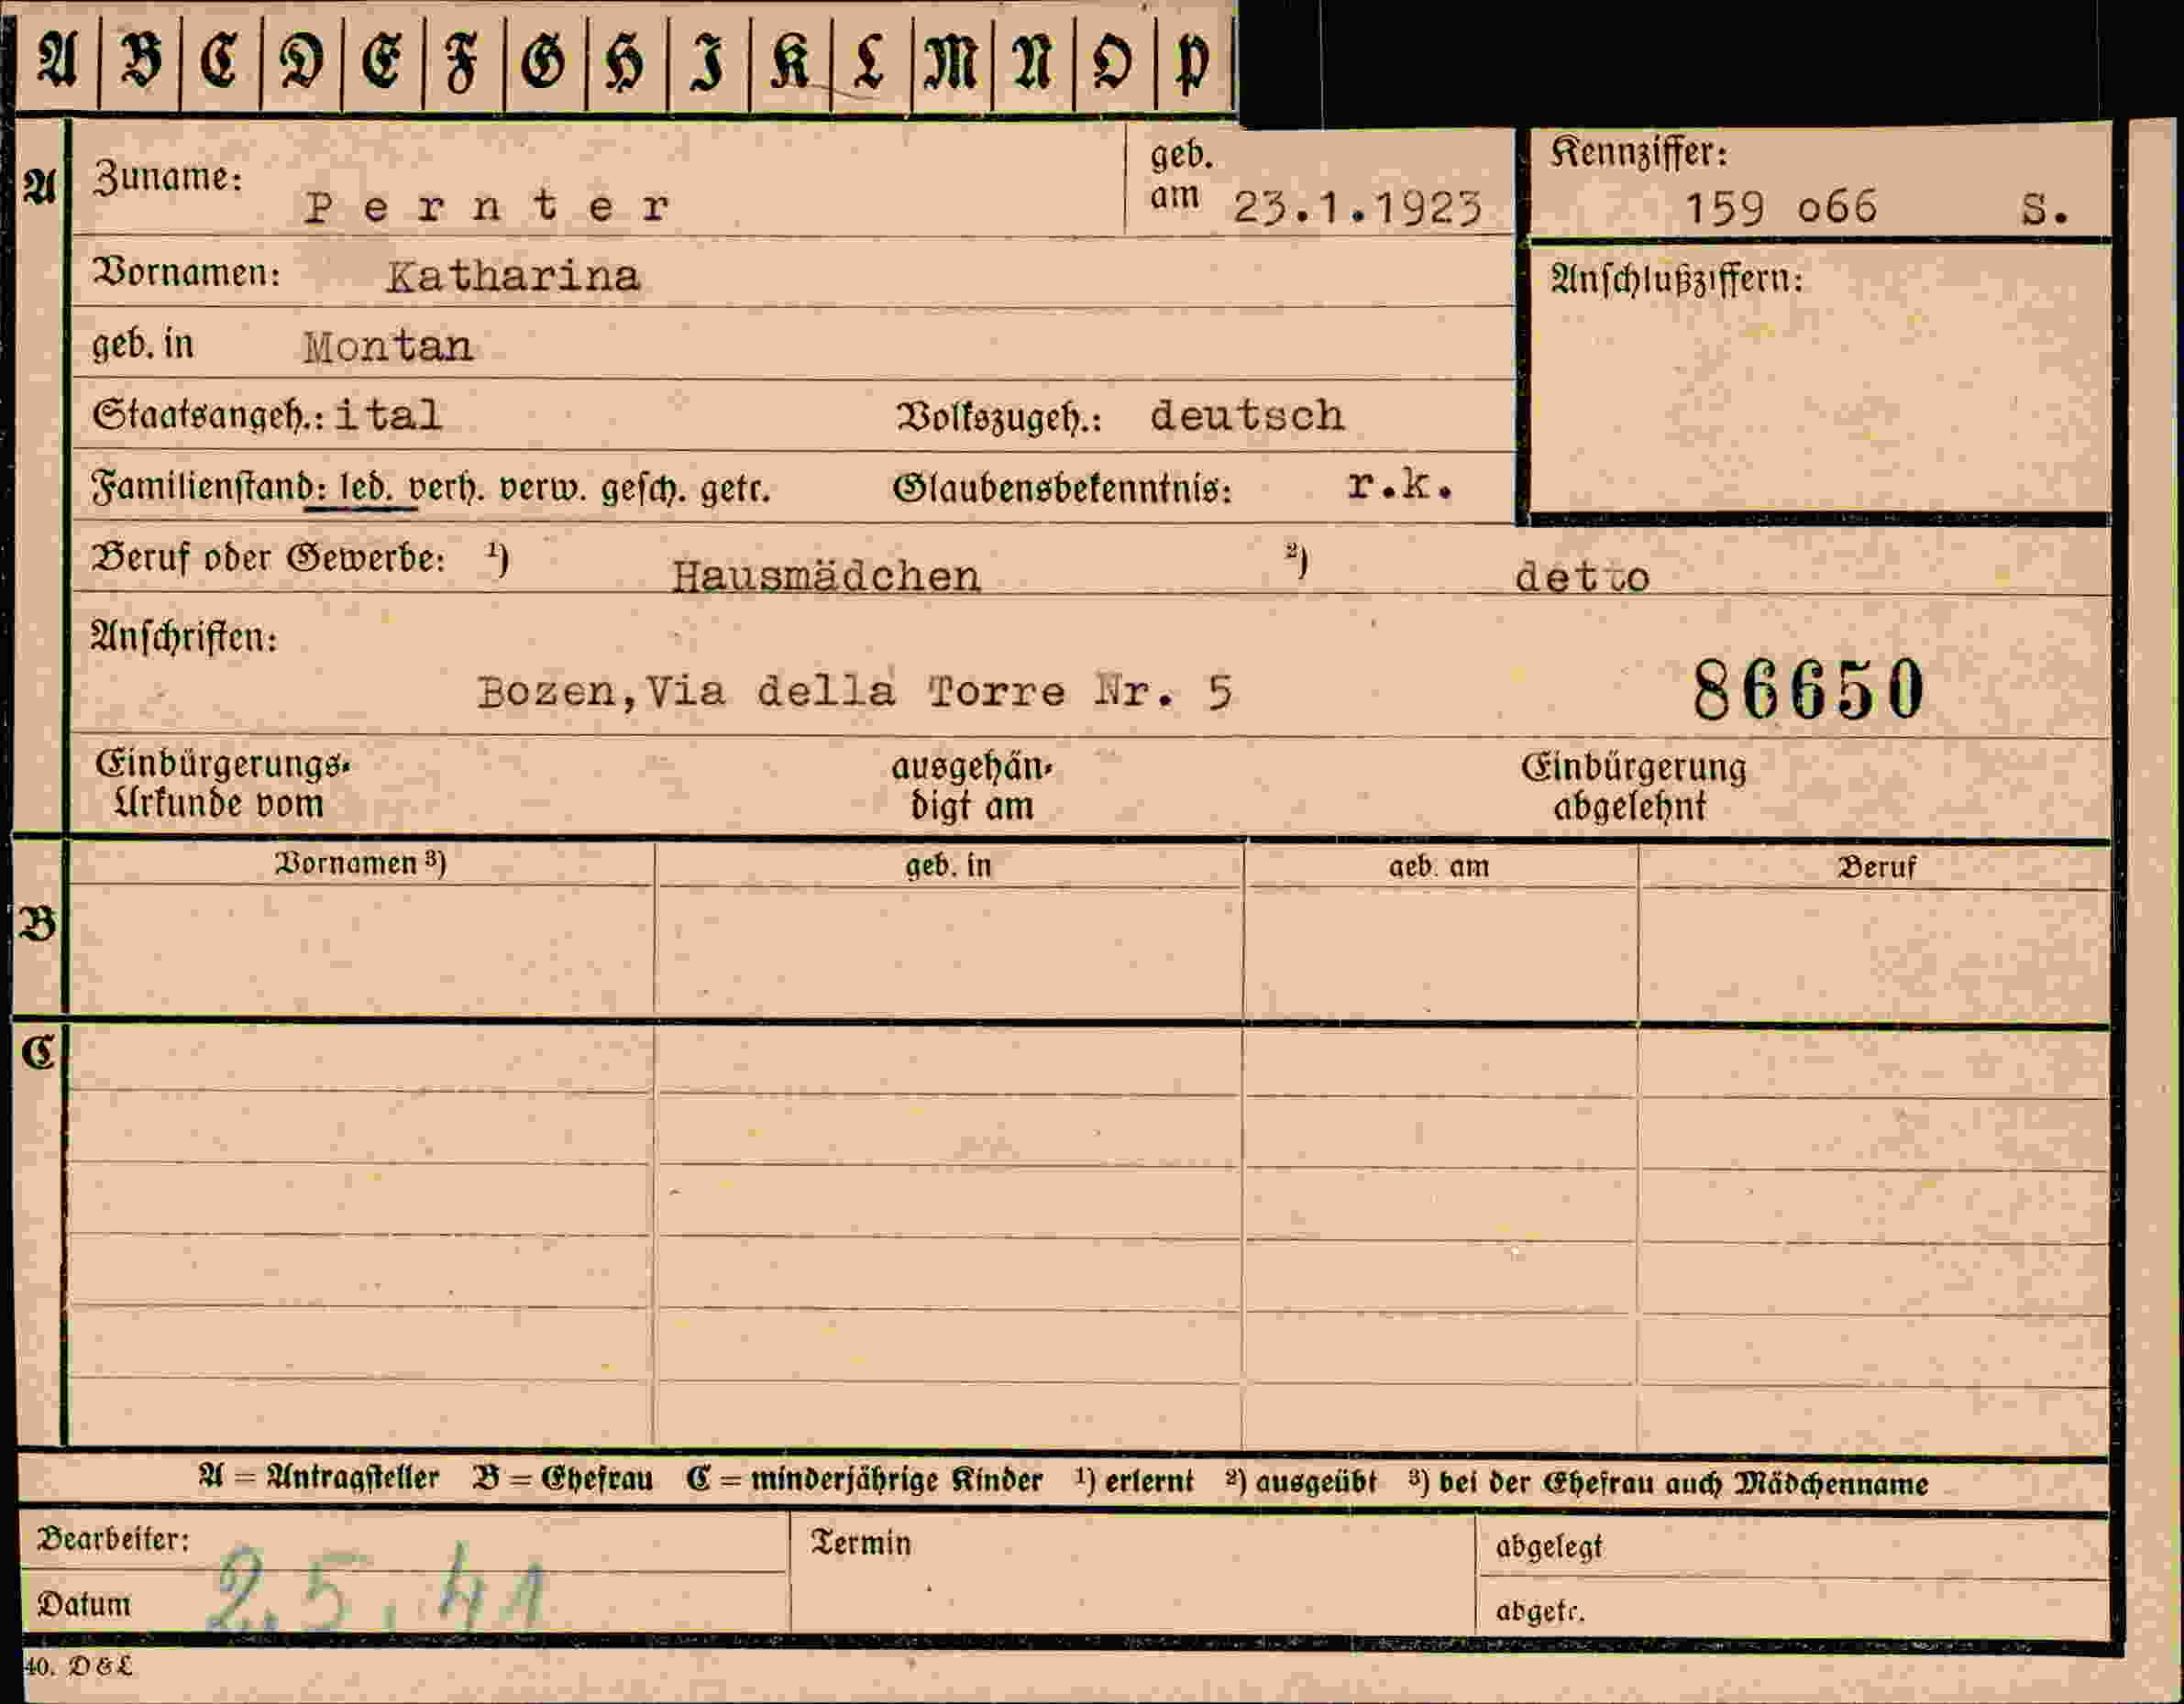 A B C D E F G H I K L M N O P
A Zuname: Pernter geb. am 23.1.1923 Kennziffer: 159 o66 S.
Vornamen: Katharina Anschlußziffern:
geb. in Montan
Staatsangeh.: ital Volkszugeh.: deutsch
Familienstand: led. verh. verw. gesch. getr. Glaubensbekenntnis: r.k.
Beruf oder Gewerbe: ¹) Hausmädchen ²) detto
Anschriften:
Bozen,Via della Torre Nr. 5 86650
Einbürgerungs- ausgehän- Einbürgerung
Urkunde vom digt am abgelehnt
Vornamen ³) geb. in geb. am Beruf
B
C
A = Antragsteller B = Ehefrau C = minderjährige Kinder ¹) erlernt ²) ausgeübt ³) bei der Ehefrau auch Mädchenname
Bearbeiter: Termin abgelegt
Datum 2.5.41 abgetr.
40. D&L